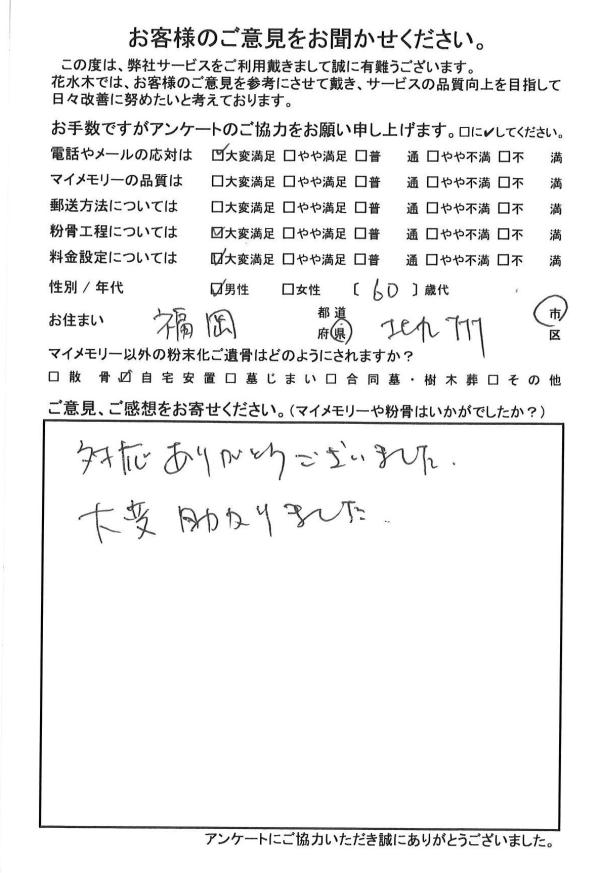 お客様のご意見をお聞かせください。
この度は、弊社サービスをご利用戴きまして誠に有難うございます。
花水木では、お客様のご意見を参考にさせて戴き、サービスの品質向上を目指して
日々改善に努めたいと考えております。
お手数ですがアンケートのご協力をお願い申し上げます。□に✔してください。
電話やメールの応対は ☑大変満足 □やや満足 □普 通 □やや不満 □不 満
マイメモリーの品質は □大変満足 □やや満足 □普 通 □やや不満 □不 満
郵送方法については □大変満足 □やや満足 □普 通 □やや不満 □不 満
粉骨工程については ☑大変満足 □やや満足 □普 通 □やや不満 □不 満
料金設定については ☑大変満足 □やや満足 □普 通 □やや不満 □不 満
性別 / 年代 ☑男性 □女性 〔 60 〕歳代
お住まい 福岡 都道府県 北九州 市区
マイメモリー以外の粉末化ご遺骨はどのようにされますか？
□散 骨 ☑自宅安置 □墓じまい □合同墓・樹木葬 □その他
ご意見、ご感想をお寄せください。（マイメモリーや粉骨はいかがでしたか？）
対応ありがとうございました.
大変助かりました.
アンケートにご協力いただき誠にありがとうございました。